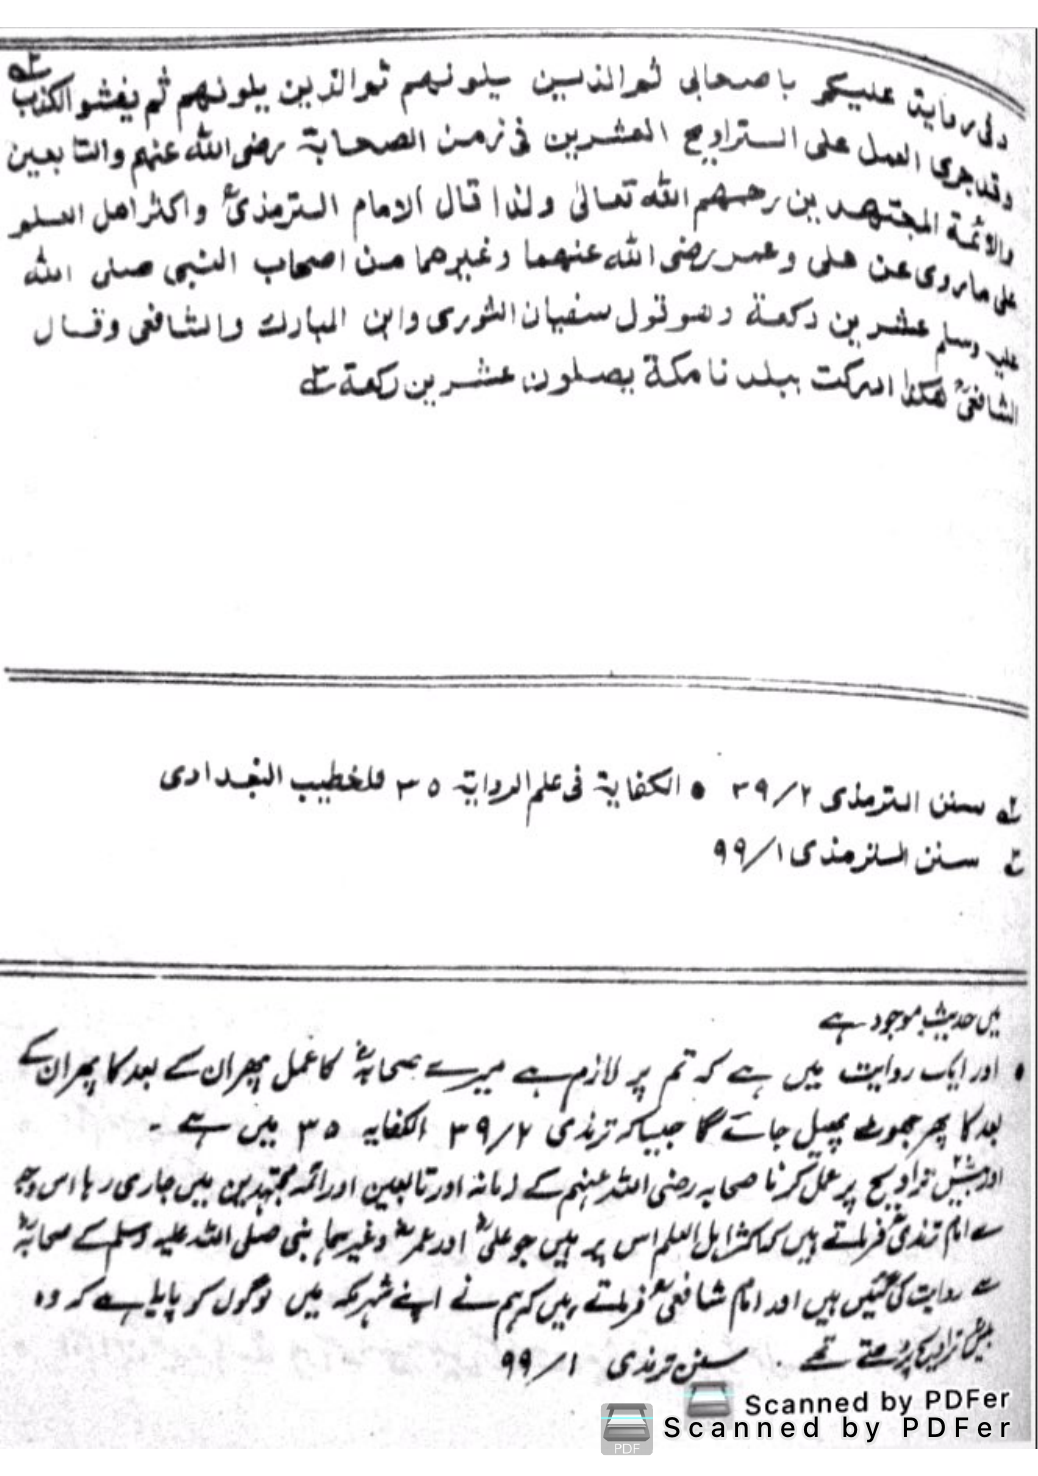 وفى رواية عليكم باصحابى ثم الذين يلونهم ثم الذين يلونهم ثم يفشو الكذب
وقد جرى العمل على التراويح العشرين فى زمن الصحابة رضى الله عنهم والتابعين
والائمة المجتهدين رحمهم الله تعالى ولذا قال الامام الترمذىؒ واكثر اهل العلم
على ما روى عن على وعمر رضى الله عنهما وغيرهما من اصحاب النبى صلى الله
عليه وسلم عشرين ركعة وهو قول سفيان الثورى وابن المبارك والشافعى وقال
الشافعىؒ هكذا ادركت ببلدنا مكة يصلون عشرين ركعة
سنن الترمذى ٣٩/٢ • الكفاية فى علم الرواية ٣٥ للخطيب البغدادى
سنن الترمذى ٩٩/١
میں حدیث موجود ہے
• اور ایک روایت میں ہے کہ تم پر لازم ہے میرے صحابہؓ کا عمل پھر ان کے بعد کا پھر ان کے
بعد کا پھر جھوٹ پھیل جائے گا جیسا کہ ترمذی ٣٩/٢ الکفایہ ٣٥ میں ہے -
اور بیس تراویح پر عمل کرنا صحابہ رضی اللہ عنہم کے زمانہ اور تابعین اور ائمہ مجتہدین میں جاری رہا اس وجہ
سے امام ترمذیؒ فرماتے ہیں کہ اکثر اہل العلم اس پر ہیں جو علیؓ اور عمرؓ وغیرہما نبی صلی اللہ علیہ وسلم کے صحابہؓ
سے روایت کی گئیں ہیں اور امام شافعیؒ فرماتے ہیں کہ ہم نے اپنے شہر مکہ میں لوگوں کو پایا ہے کہ وہ
بیس تراویح پڑھتے تھے . سنن ترمذی ٩٩/١
Scanned by PDFer
Scanned by PDFer
PDF